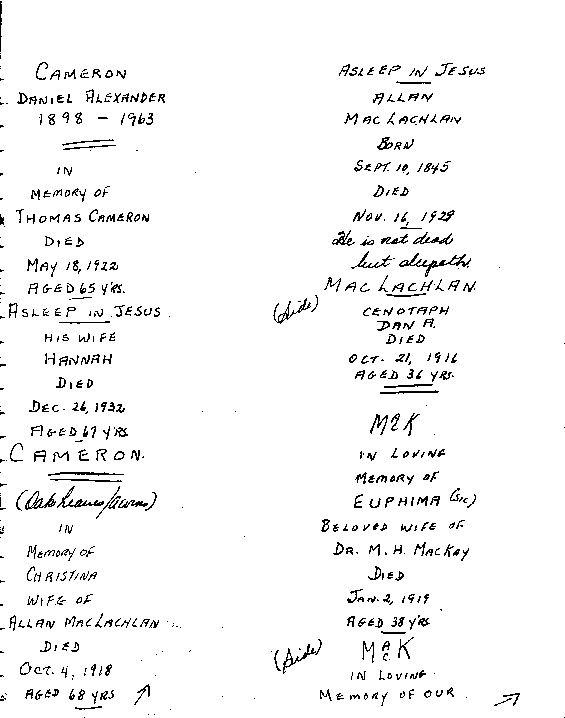 CAMERON
DANIEL ALEXANDER
1898 - 1963
IN
MEMORY OF
THOMAS CAMERON
DIED
MAY 18, 1922
AGED 65 YRS.
ASLEEP IN JESUS
HIS WIFE
HANNAH
DIED
DEC. 26, 1932
AGED 67 YRS
CAMERON.
(Oak Leaves/acorns)
IN
MEMORY OF
CHRISTINA
WIFE OF
ALLAN MACLACHLAN
DIED
OCT. 4, 1918
AGED 68 YRS
ASLEEP IN JESUS
ALLAN
MACLACHLAN
BORN
SEPT. 10, 1845
DIED
NOV. 16, 1929
He is not dead
but sleepeth.
MACLACHLAN.
(side)
CENOTAPH
DAN A.
DIED
OCT. 21, 1916
AGED 36 YRS.
McK
IN LOVING
MEMORY OF
EUPHIMA (sic)
BELOVED WIFE OF
DR. M. H. MACKAY
DIED
JAN. 2, 1919
AGED 38 YRS
(side) McK
IN LOVING
MEMORY OF OUR